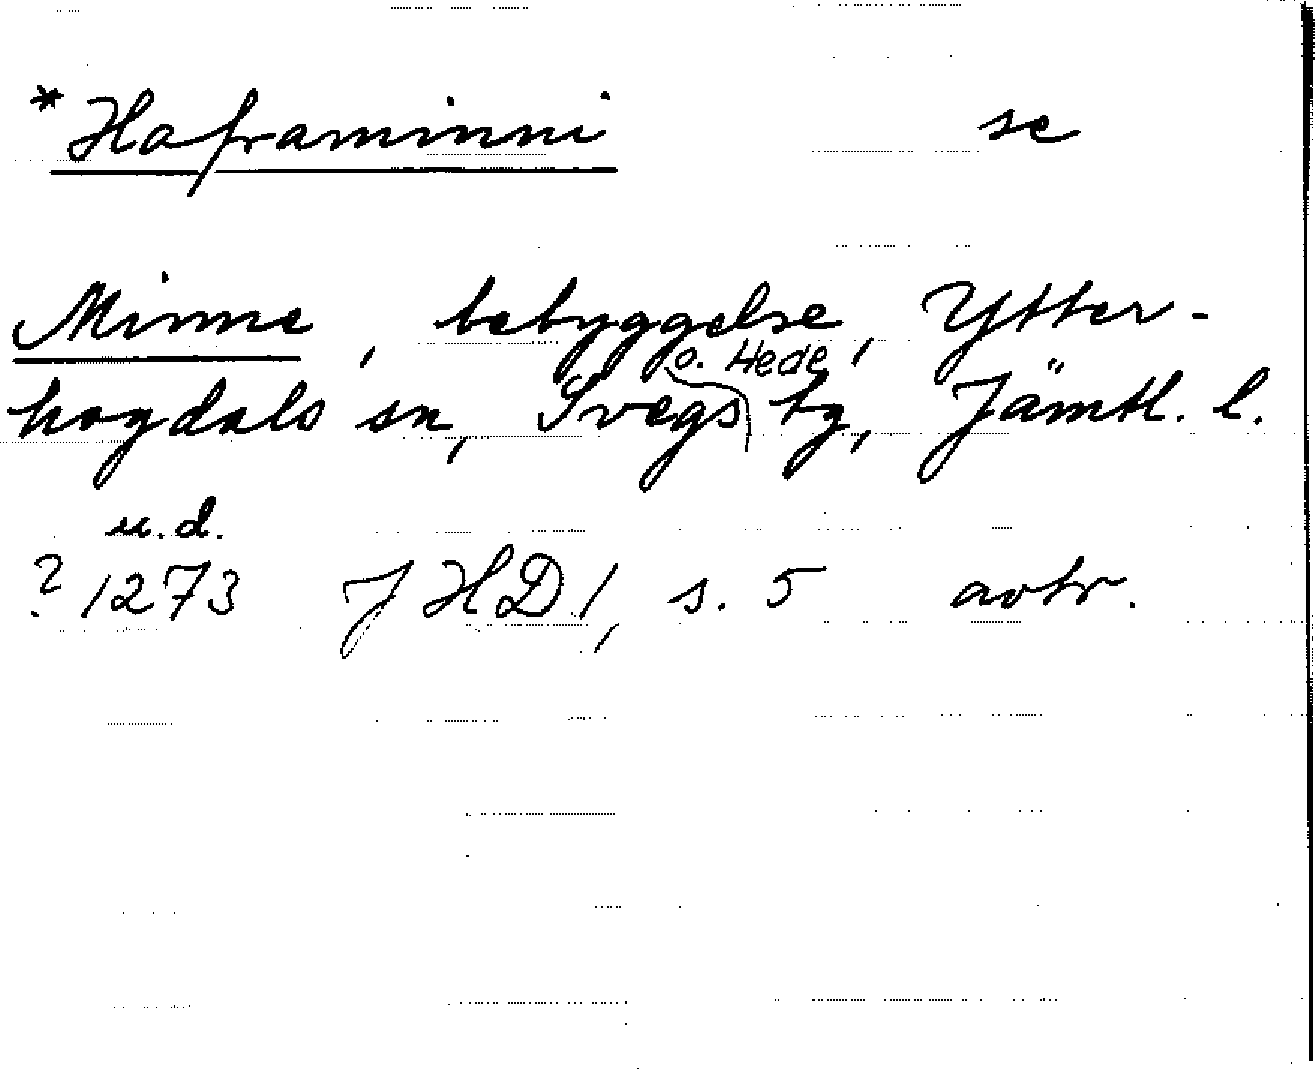 *Haframinni se
Minne, bebyggelse, Ytter-
o. Hede
hogdals sn, Svegs tg, Jämtl. l.
u.d.
? 1273 JHD 1, s. 5 avtr.